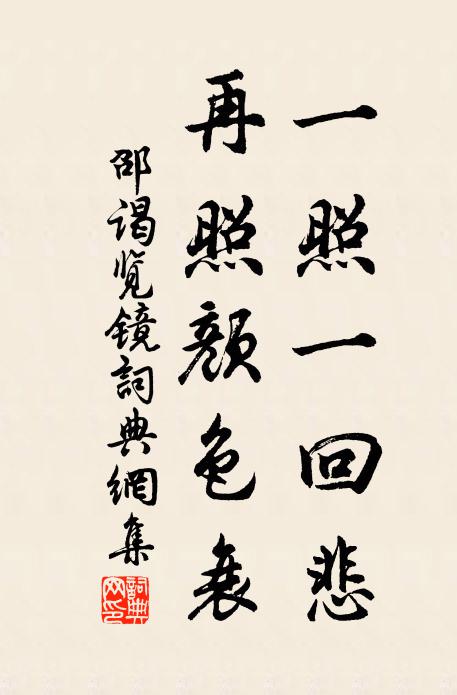 一照一回悲
再照顏色衰
邵谒览镜詞典網集
詞典网印